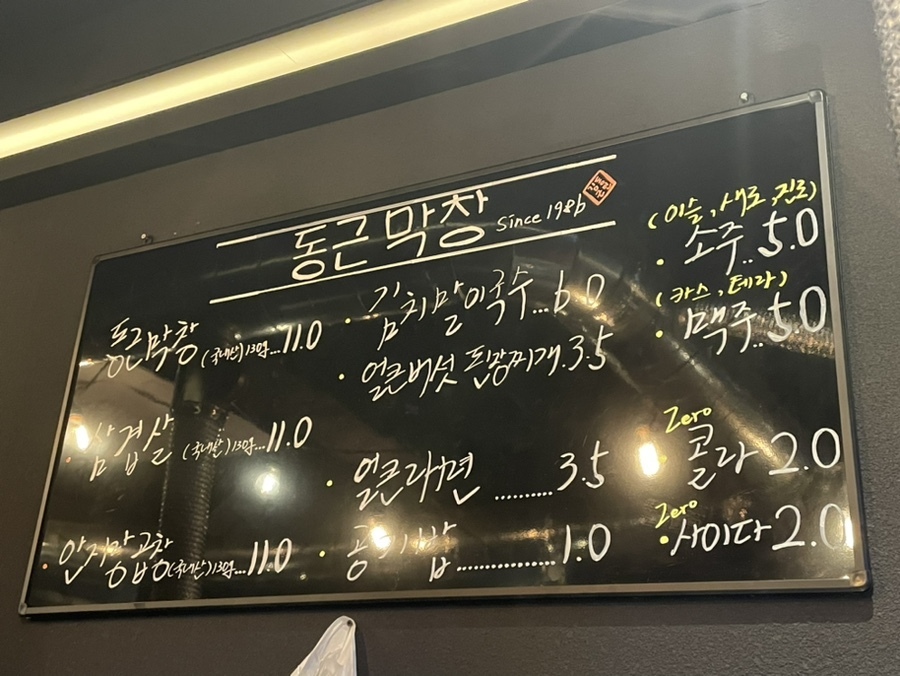 동근막창 since 1986
동근막창 (국내산) 130g...11.0
삼겹살 (국내산) 130g...11.0
안지랑곱창 (국내산) 130g...11.0
김치말이국수...6.0
얼큰버섯 된장찌개.3.5
얼큰라면 ..........3.5
공기밥................1.0
(이슬, 새로, 진로)
소주..5.0
(카스, 테라)
맥주..5.0
Zero
콜라 2.0
Zero
사이다 2.0